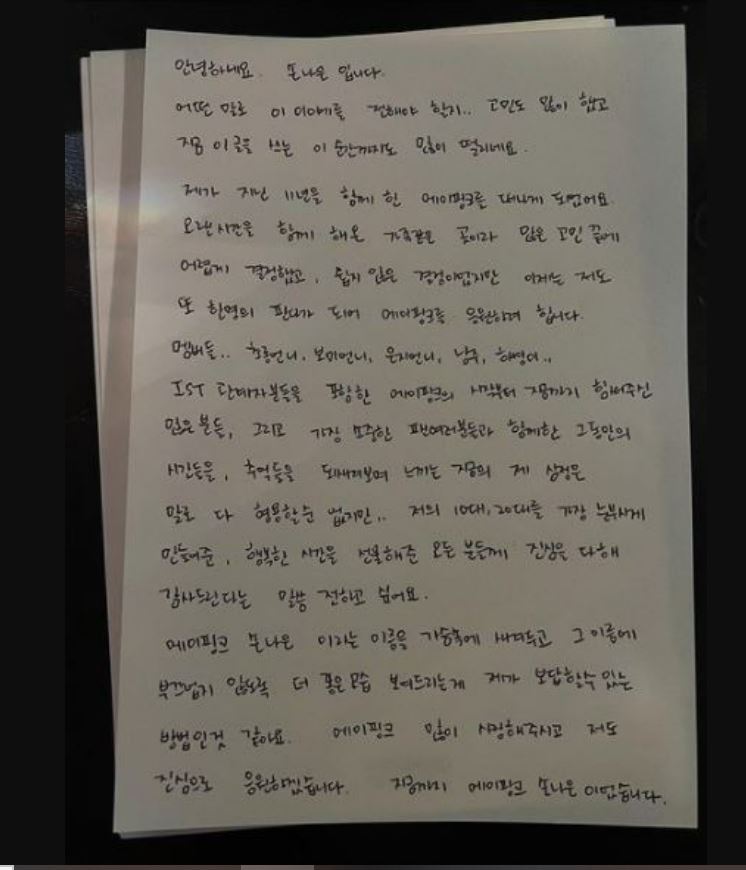 안녕하세요. 손나은 입니다.
어떤 말로 이 이야기를 전해야 할지.. 고민도 많이 했고
지금 이 글을 쓰는 이 순간까지도 많이 떨리네요.
제가 지난 11년을 함께 한 에이핑크를 떠나게 되었어요.
오랜시간을 함께 해온 가족같은 곳이라 많은 고민 끝에
어렵게 결정했고, 쉽지 않은 결정이었지만 이제는 저도
또 한명의 판다가 되어 에이핑크를 응원하려 합니다.
멤버들.. 초롱언니, 보미언니, 은지언니, 남주, 하영이..
IST 관계자분들을 포함한 에이핑크의 시작부터 지금까지 힘써주신
많은분들, 그리고 가장 소중한 팬여러분들과 함께한 그동안의
시간들을, 추억들을 되새겨보며 느끼는 지금의 제 심정은
말로 다 형용할순 없지만.. 저의 10대, 20대를 가장 눈부시게
만들어준, 행복한 시간을 선물해준 모든 분들께 진심을 다해
감사드린다는 말씀 전하고 싶어요.
에이핑크 손나은 이라는 이름을 가슴속에 새겨두고 그 이름에
부끄럽지 않도록 더 좋은모습 보여드리는게 제가 보답할수 있는
방법인것 같아요. 에이핑크 많이 사랑해주시고 저도
진심으로 응원하겠습니다. 지금까지 에이핑크 손나은 이었습니다.